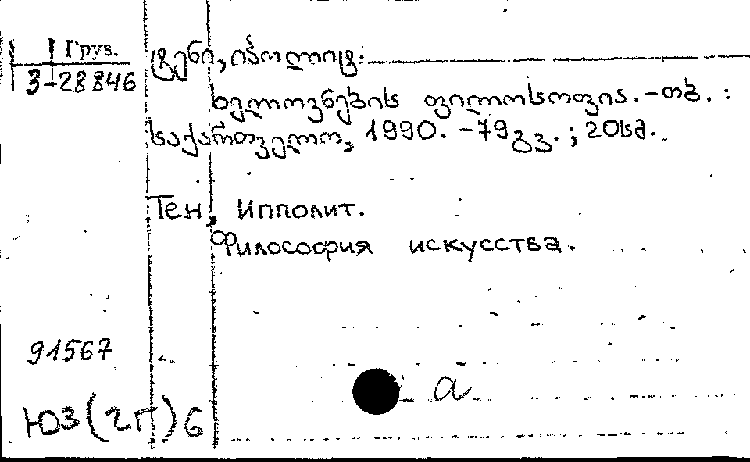 Груз.
3-28846
ტენი, იპოლიტ.
ხელოვნების ფილოსოფია. -თბ. :
საქართველო, 1990. -79გვ. ; 20სმ.
Тен, Ипполит.
Философия искусства.
91567
а
ЮЗ(2Г)6